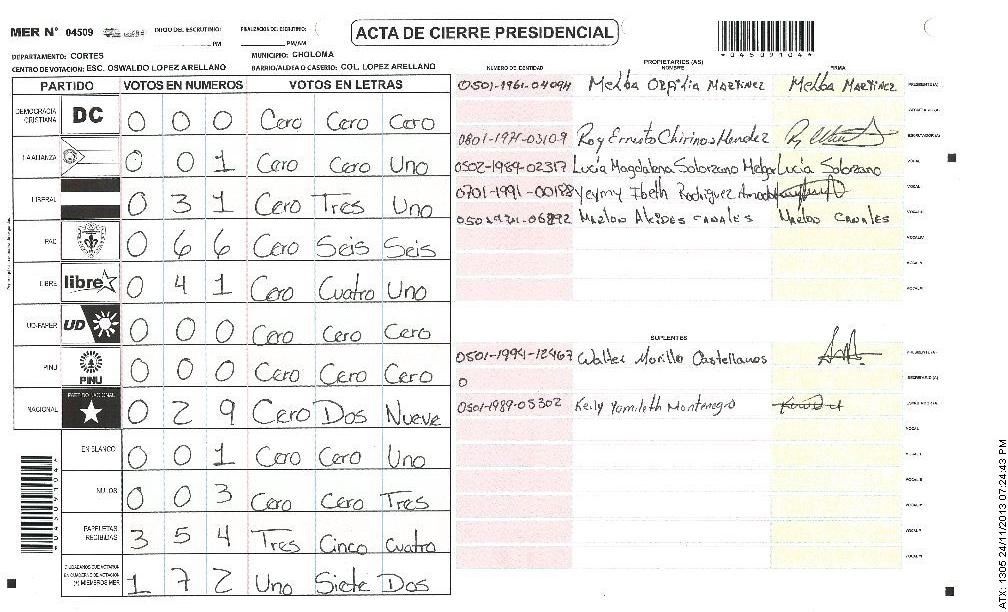 MER N° 04509
INICIO DEL ESCRUTINIO: PM
FINALIZACION DEL ESCRUTINIO: PM/AM
ACTA DE CIERRE PRESIDENCIAL
*04509104*
DEPARTAMENTO: CORTES
MUNICIPIO: CHOLOMA
CENTRO DE VOTACION: ESC. OSWALDO LOPEZ ARELLANO
BARRIO/ALDEA O CASERIO: COL. LOPEZ ARELLANO
PARTIDO VOTOS EN NUMEROS VOTOS EN LETRAS
DEMOCRACIA CRISTIANA DC 0 0 0 Cero Cero Cero
LA ALIANZA 0 0 1 Cero Cero Uno
LIBERAL 0 3 1 Cero Tres Uno
PAC 0 6 6 Cero Seis Seis
LIBRE libre 0 4 1 Cero Cuatro Uno
UD-FAPER UD 0 0 0 Cero Cero Cero
PINU PINU 0 0 0 Cero Cero Cero
NACIONAL PARTIDO NACIONAL 0 2 9 Cero Dos Nueve
EN BLANCO 0 0 1 Cero Cero Uno
NULOS 0 0 3 Cero Cero Tres
PAPELETAS RECIBIDAS 3 5 4 Tres Cinco Cuatro
CIUDADANOS QUE VOTARON EN CUADERNO DE VOTACION (+) MIEMBROS MER 1 7 2 Uno Siete Dos
PROPIETARIOS (AS)
NUMERO DE IDENTIDAD NOMBRE FIRMA
Melba Martinez Melba Martinez PRESIDENTE(A)
SECRETARIO(A)
Roy Ernesto Chirinos Mendez ESCRUTADOR(A)
0502-1989-02317 Lucia Magdalena Solorzano Lucia Solorzano VOCAL
0701-1991-00188 Rodriguez VOCAL I
Marlon Alcides Canales Marlon Canales VOCAL II
VOCAL IV
VOCAL V
VOCAL VI
SUPLENTES
0501-1994-12467 Walter Castellanos PRESIDENTE(A)
0 SECRETARIO(A)
0501-1989-05302 Keily Yamileth Montenegro ESCRUTADOR(A)
VOCAL
ATX: 1305 24/11/2013 07:24:43 PM